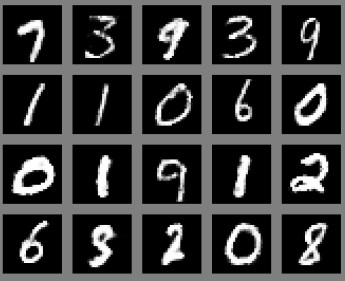 7 3 9 3 9
1 1 0 6 0
0 1 9 1 2
6 8 2 0 8